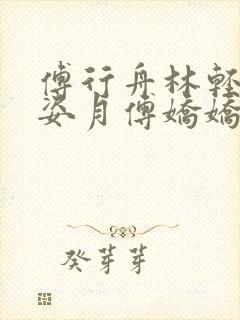 傅行舟林轻
姿月傅嬌嬌
癸芽芽